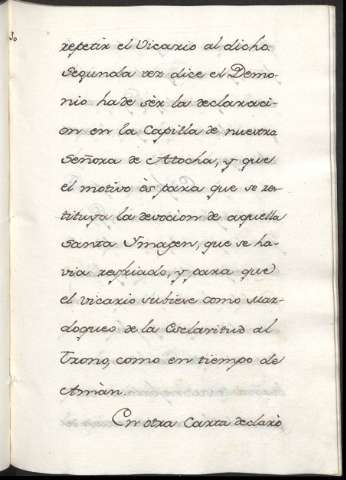 30
repetir el Vicario al dicho
segunda vez dice el Demo-
nio ha de sèr la declaraci-
on en la Capilla de nuestra
Señora de Atocha, y que
el motivo ès para que se res-
tituya la devocion de aquella
Santa Ymagen, que se ha-
via resfriado, y para que
el vicario subiese como Mar-
doqueo de la Esclavitud al
Trono, como en tiempo de
Amàn.
En otra Carta declarò